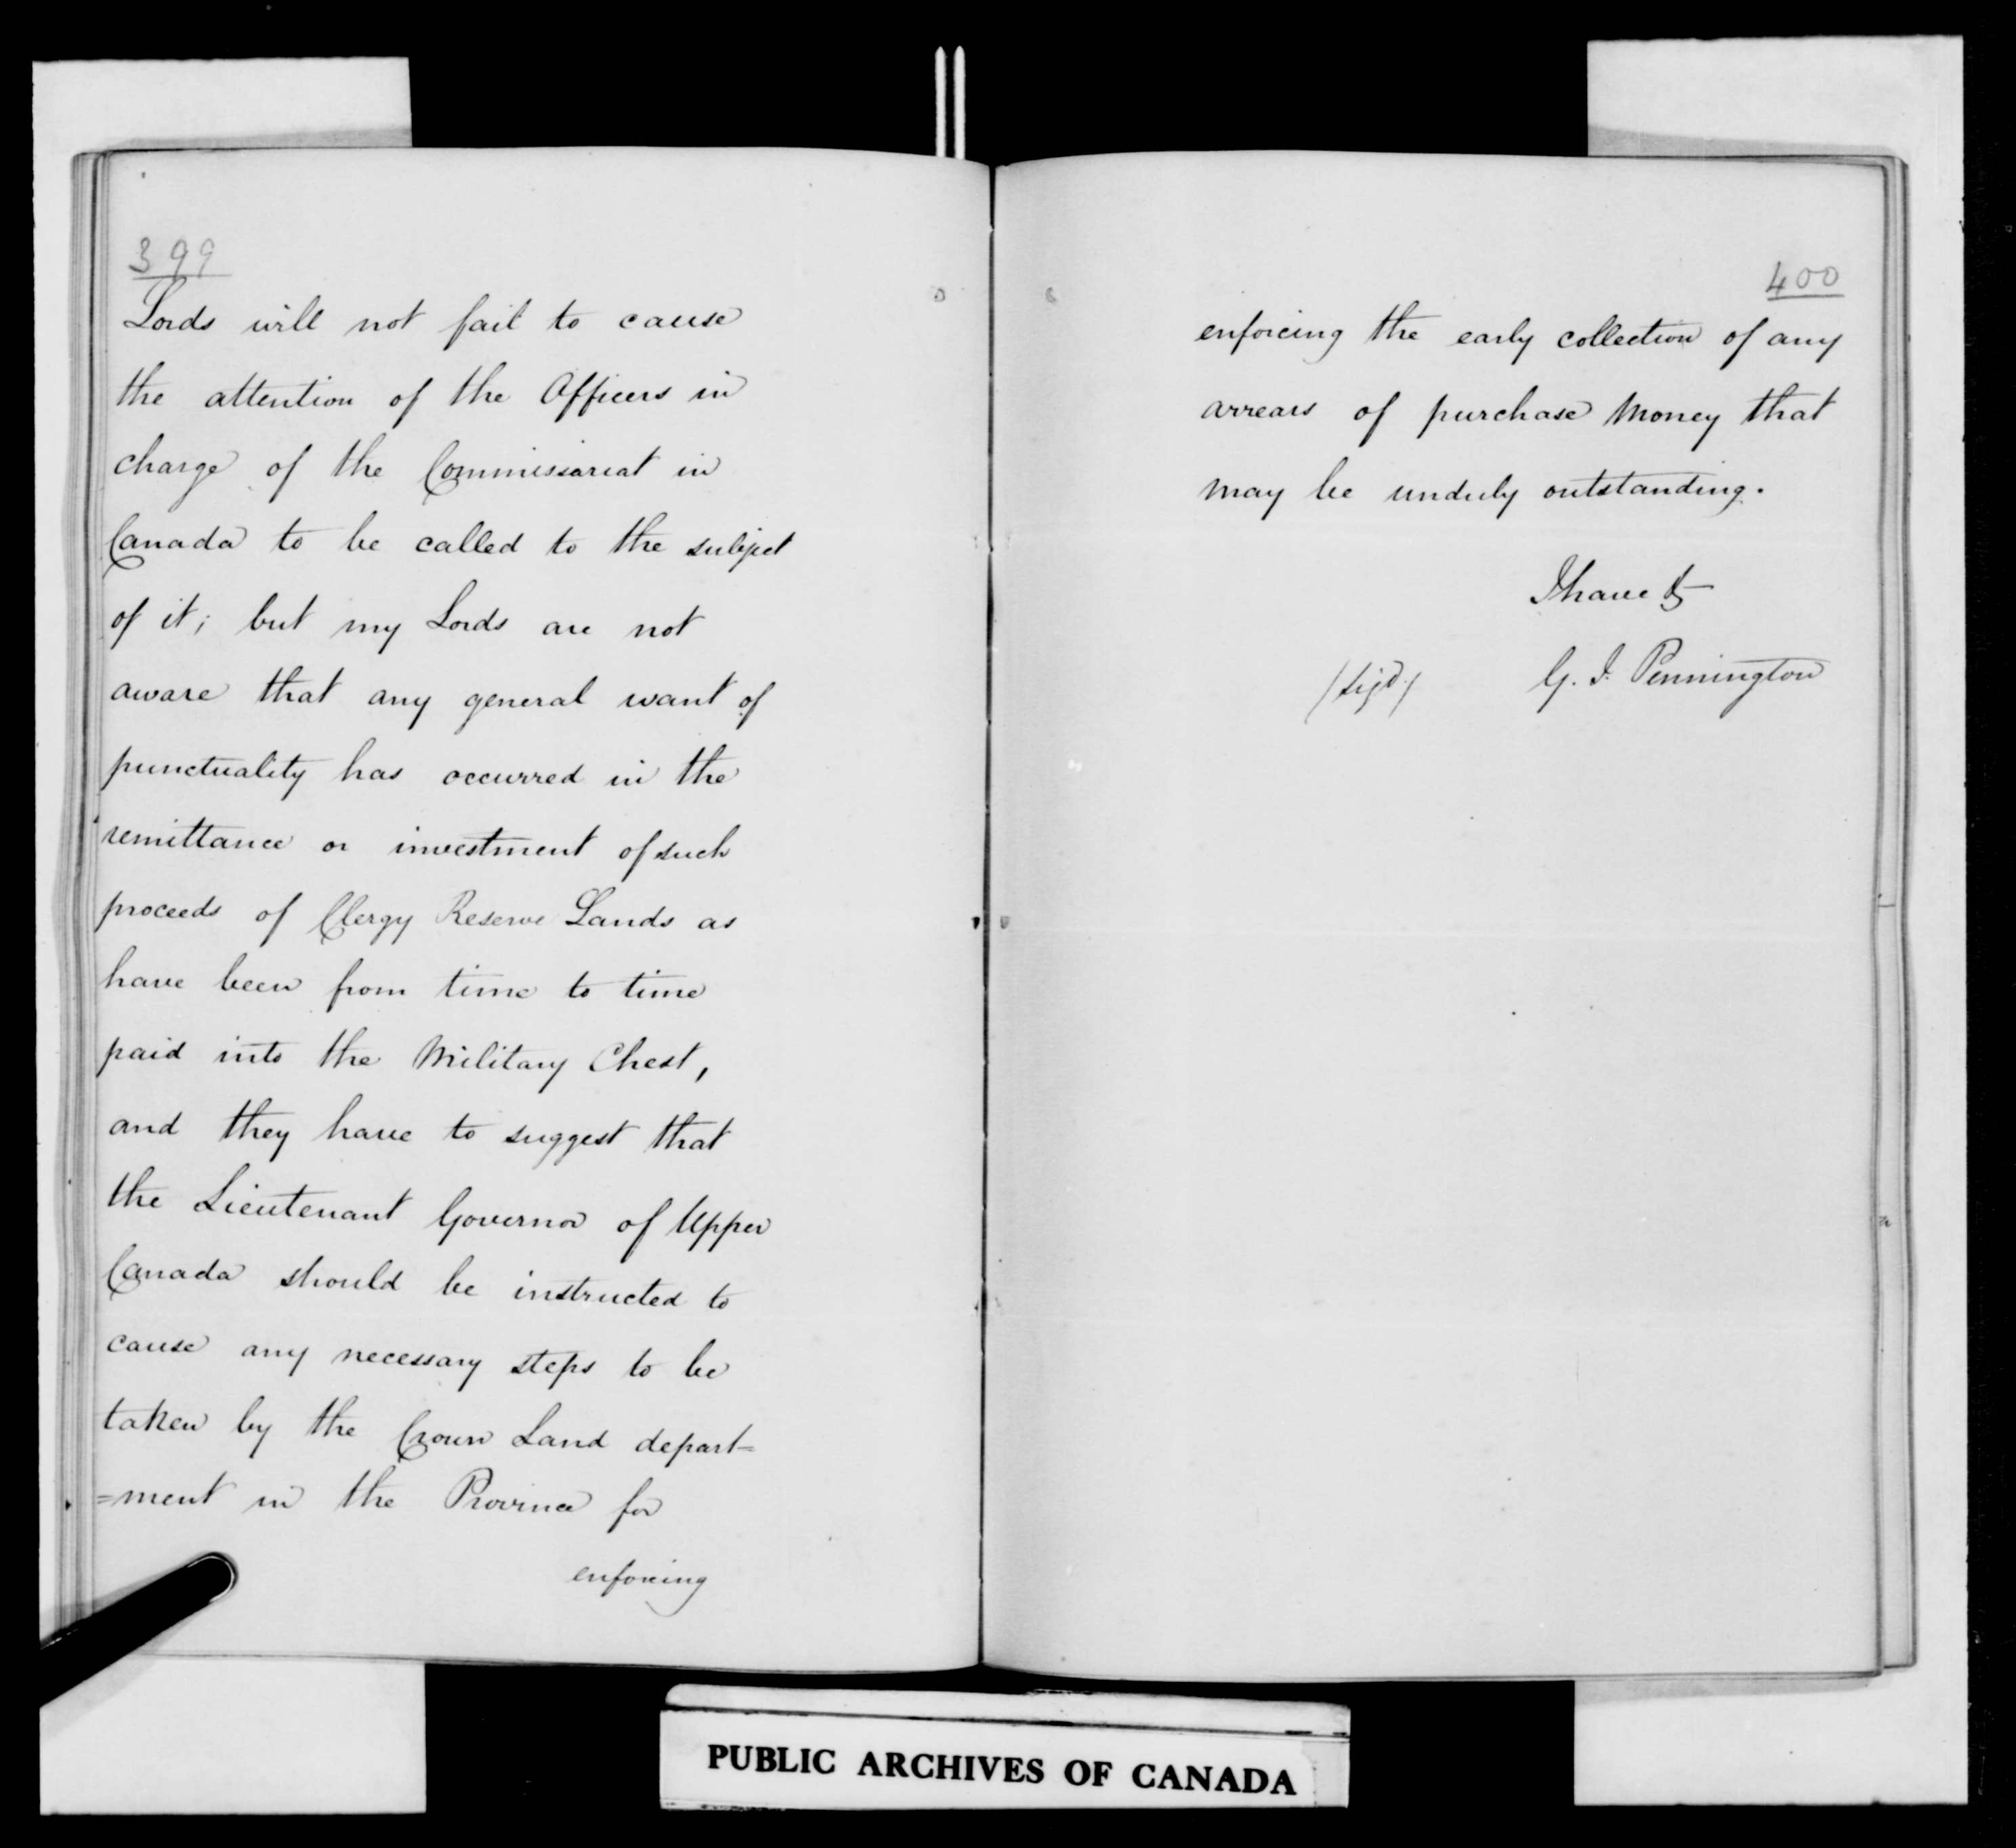 399
Lords will not fail to cause
the attention of the Officers in
charge of the Commissariat in
Canada to be called to the subject
of it; but my Lords are not
aware that any general want of
punctuality has occurred in the
remittance or investment of such
proceeds of Clergy Reserve Lands as
have been from time to time
paid into the Military Chest,
and they have to suggest that
the Lieutenant Governor of Upper
Canada should be instructed to
cause any necessary steps to be
taken by the Crown Land depart=
=ment in the Province for
enforcing
400
enforcing the early collection of any
arrears of purchase Money that
may be unduly outstanding.
I have &
/sigd/ G. J. Pennington
PUBLIC ARCHIVES OF CANADA